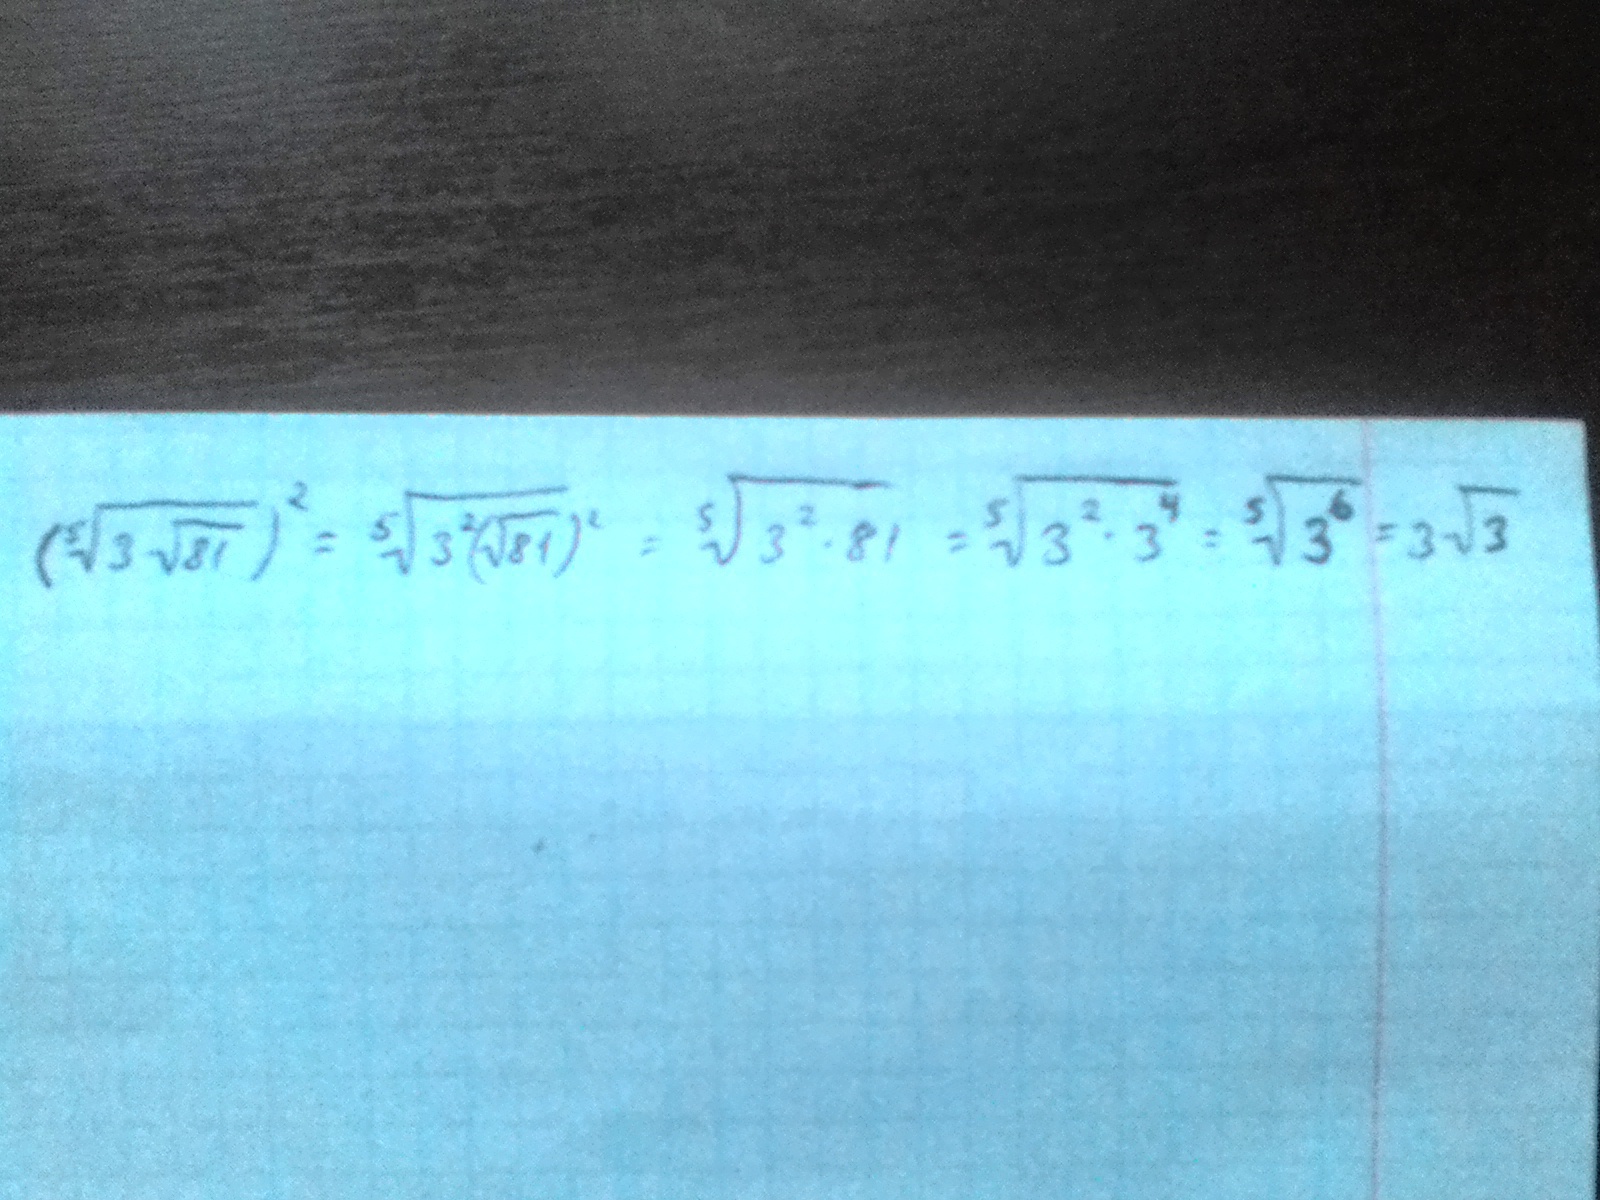 (⁵√(3√81))² = ⁵√(3²(√81)²) = ⁵√(3²·81) = ⁵√(3²·3⁴) = ⁵√(3⁶) = 3√3